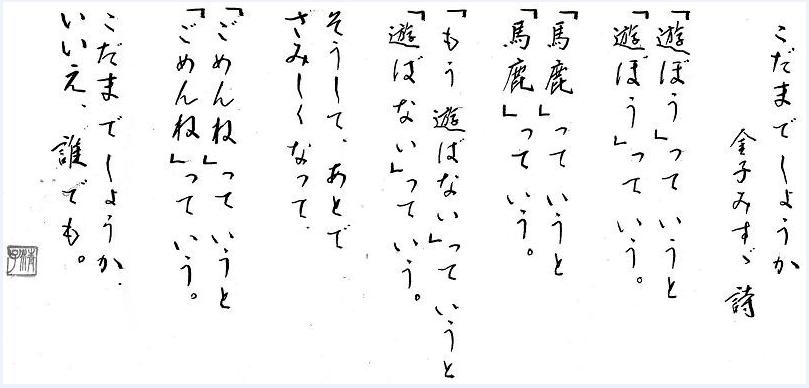 こだまでしょうか
金子みすゞ 詩
「遊ぼう」っていうと
「遊ぼう」っていう。
「馬鹿」っていうと
「馬鹿」っていう。
「もう遊ばない」っていうと
「遊ばない」っていう。
そうして、あとで
さみしくなって、
「ごめんね」っていうと
「ごめんね」っていう。
こだまでしょうか、
いいえ、誰でも。